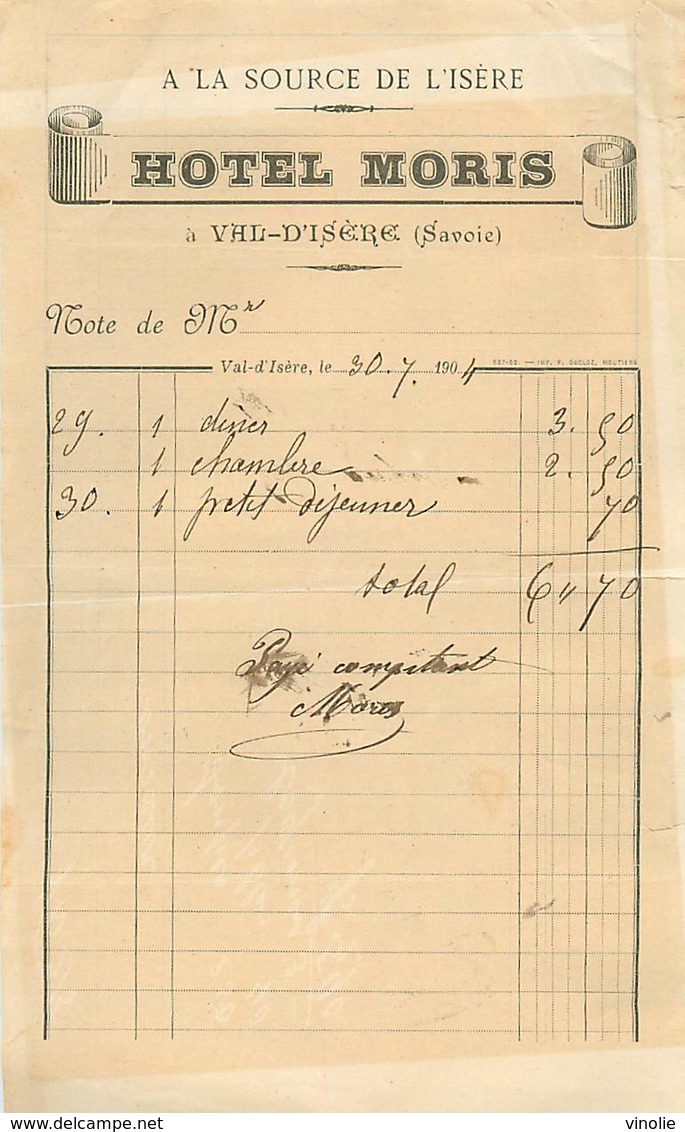 A LA SOURCE DE L'ISÈRE
HOTEL MORIS
à VAL-D'ISÈRE (Savoie)
Note de Mr
Val-d'Isère, le 30. 7. 1904
527-03. — IMP. F. DUCLOZ, MOUTIERS
29. 1 diner 3. 50
1 chambre 2. 50
30. 1 petit déjeuner 70
total 6 " 70
Payé comptant
Moris
delcampe.net
vinolie